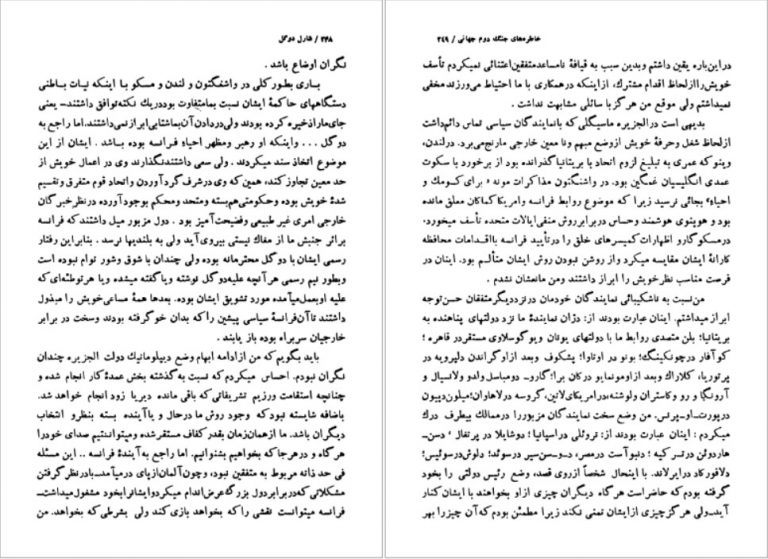 خاطره‌های جنگ دوم جهانی / ۲۴۹
در این‌باره یقین داشتم وبدین سبب به قیافهٔ نامساعد متفقین اعتنائی نمیکردم تأسف
خویش را از لحاظ اقدام مشترک، از اینکه در همکاری با ما احتیاط می‌ورزند مخفی
نمیداشتم ولی موقع من هرگز با سائلی مشابهت نداشت .
بدیهی است در الجزیره ماسیگلی که با نمایندگان سیاسی تماس دائم داشت
از لحاظ شغل و حرفهٔ خویش از وضع مبهم وناـ معین خارجی ما رنج می‌برد. در لندن،
وینو که عمری به تبلیغ لزوم اتحاد با بریتانیا گذرانده بود از برخورد با سکوت
عمدی انگلیسیان غمگین بود. در واشنگتون مذاکرات مونه «برای کومك و
احیاء» بجائی نرسید زیرا که موضوع روابط فرانسه وامریکا کماکان معلق مانده
بود و هوپنوی هوشمند وحساس در برابر روش منفی ایالات متحده تأسف میخورد.
در مسکو گارو اظهارات کمیسرهای خلق را در تأیید فرانسه با اقدامات محافظه
کارانهٔ ایشان مقایسه میکرد واز روشن نبودن روش ایشان متألم بود. اینان در
فرصت مناسب نظر خویش را ابراز داشتند ومن مانعشان نشدم .
من نسبت به ناشکیبائی نمایندگان خودمان در نزد دیگر متفقان حسن توجه
ابراز میداشتم. اینان عبارت بودند از: دژان نمایندهٔ ما نزد دولتهای پناهنده به
بریتانیا؛ بلن متصدی روابط ما با دولتهای یونان ویوگوسلاوی مستقر در قاهره ؛
کوآفار در چونکینگ؛ بونو در اوتاوا؛ پشکوف وبعد از او گراندن دلپرویه در
پرتوریا، کلاراك وبعد از او مونمایو در کان برا؛ گاروـ دومباسل ولدو ولانسیال و
آرونگا و رو وکاستران ولوشنه در امریکای لاتین، گروسه در لاهاوان؛ میلون‌دپیون
در پورت‌ـ اوـ پرنس. من وضع سخت نمایندگان مزبور را در ممالك بیطرف درك
میکردم : اینان عبارت بودند از: تروئلی در اسپانیا ؛ دوشایلا در پرتغال ؛ دس‌ـ
هاردوئن در ترکیه ؛ دنبوآست در مصر، دـ ونـ سین‌یر در سوئد؛ دلوش در سوئیس؛
دلافورکاد در ایرلاند. با اینحال شخصاً از روی قصد، وضع رئیس دولتی را بخود
گرفته بودم که حاضر است هرگاه دیگران چیزی از او بخواهند با ایشان کنار
آیدـ ولی هرگز چیزی از ایشان تمنی نکند زیرا مطمئن بودم که آن چیز را بهر
۲۴۸ / شارل دوگل
نگران اوضاع باشد .
باری بطور کلی در واشنگتون و لندن و مسکو با اینکه نیات باطنی
دستگاههای حاکمهٔ ایشان نسبت بما متفاوت بود در یك نکته توافق داشتندـ یعنی
جای ما را ذخیره کرده بودند ولی در دادن آن بما شتابی ابراز نمی‌داشتند. اما راجع به
دوگل ... واینکه او رهبر ومظهر احیاء فرانسه بوده باشد . ایشان از این
موضوع اتخاذ سند میکردند . ولی سعی داشتند نگذارند وی در اعمال خویش از
حد معین تجاوز کند، همین که وی در شرف گرد آوردن واتحاد قوم متفرق وتقسیم
شدهٔ خویش بوده وحکومتی هم‌بسته ومتحد ومحکم بوجود آورده در نظر خبرگان
خارجی امری غیر طبیعی وفضیحت آمیز بود . دول مزبور میل داشتند که فرانسه
براثر جنبش ما از مغاك نیستی بیرون آید ولی به بلندیها نرسد . بنابراین رفتار
رسمی ایشان با دوگل محترمانه بوده ولی چندان با شوق وشور توام نبوده است
وبطور نیم رسمی هر آنچه علیه دوگل نوشته ویا گفته میشده ویا هر توطئه‌ای که
علیه او بعمل میآمده مورد تشویق ایشان بوده. بعدها همهٔ مساعی خویش را مبذول
داشتند تا آن فرانسهٔ سیاسی پیشین را که بدان خو گرفته بودند وسخت در برابر
خارجیان سربراه بوده باز یابند .
باید بگویم که من از ادامه ابهام وضع دیپلوماتیك دولت الجزیره چندان
نگران نبودم. احساس میکردم که نسبت به گذشته بخش عمدهٔ کار انجام شده و
چنانچه استقامت ورزیم تشریفاتی که باقی مانده دیر یا زود انجام خواهد شد.
باضافه شایسته نبود که وجود روش ما در حال و یا آینده بسته بنظر و انتخاب
دیگران باشد. ما از همان زمان بقدر کفاف مستقر شده و میتوانستیم صدای خود را
هرگاه و در هر جا که بخواهیم بشنوانیم. اما راجع به آیندهٔ فرانسه .. این مسئله
فی حد ذاته مربوط به متفقین نبود، وچون آلمان از پای در میآمدـ با در نظر گرفتن
مشکلاتی که در برابر دول بزرگ عرض اندام میکرد و ایشان را بخود مشغول میداشت‌ـ
فرانسه میتوانست نقشی را که بخواهد بازی کند ولی بشرطی که بخواهد. من